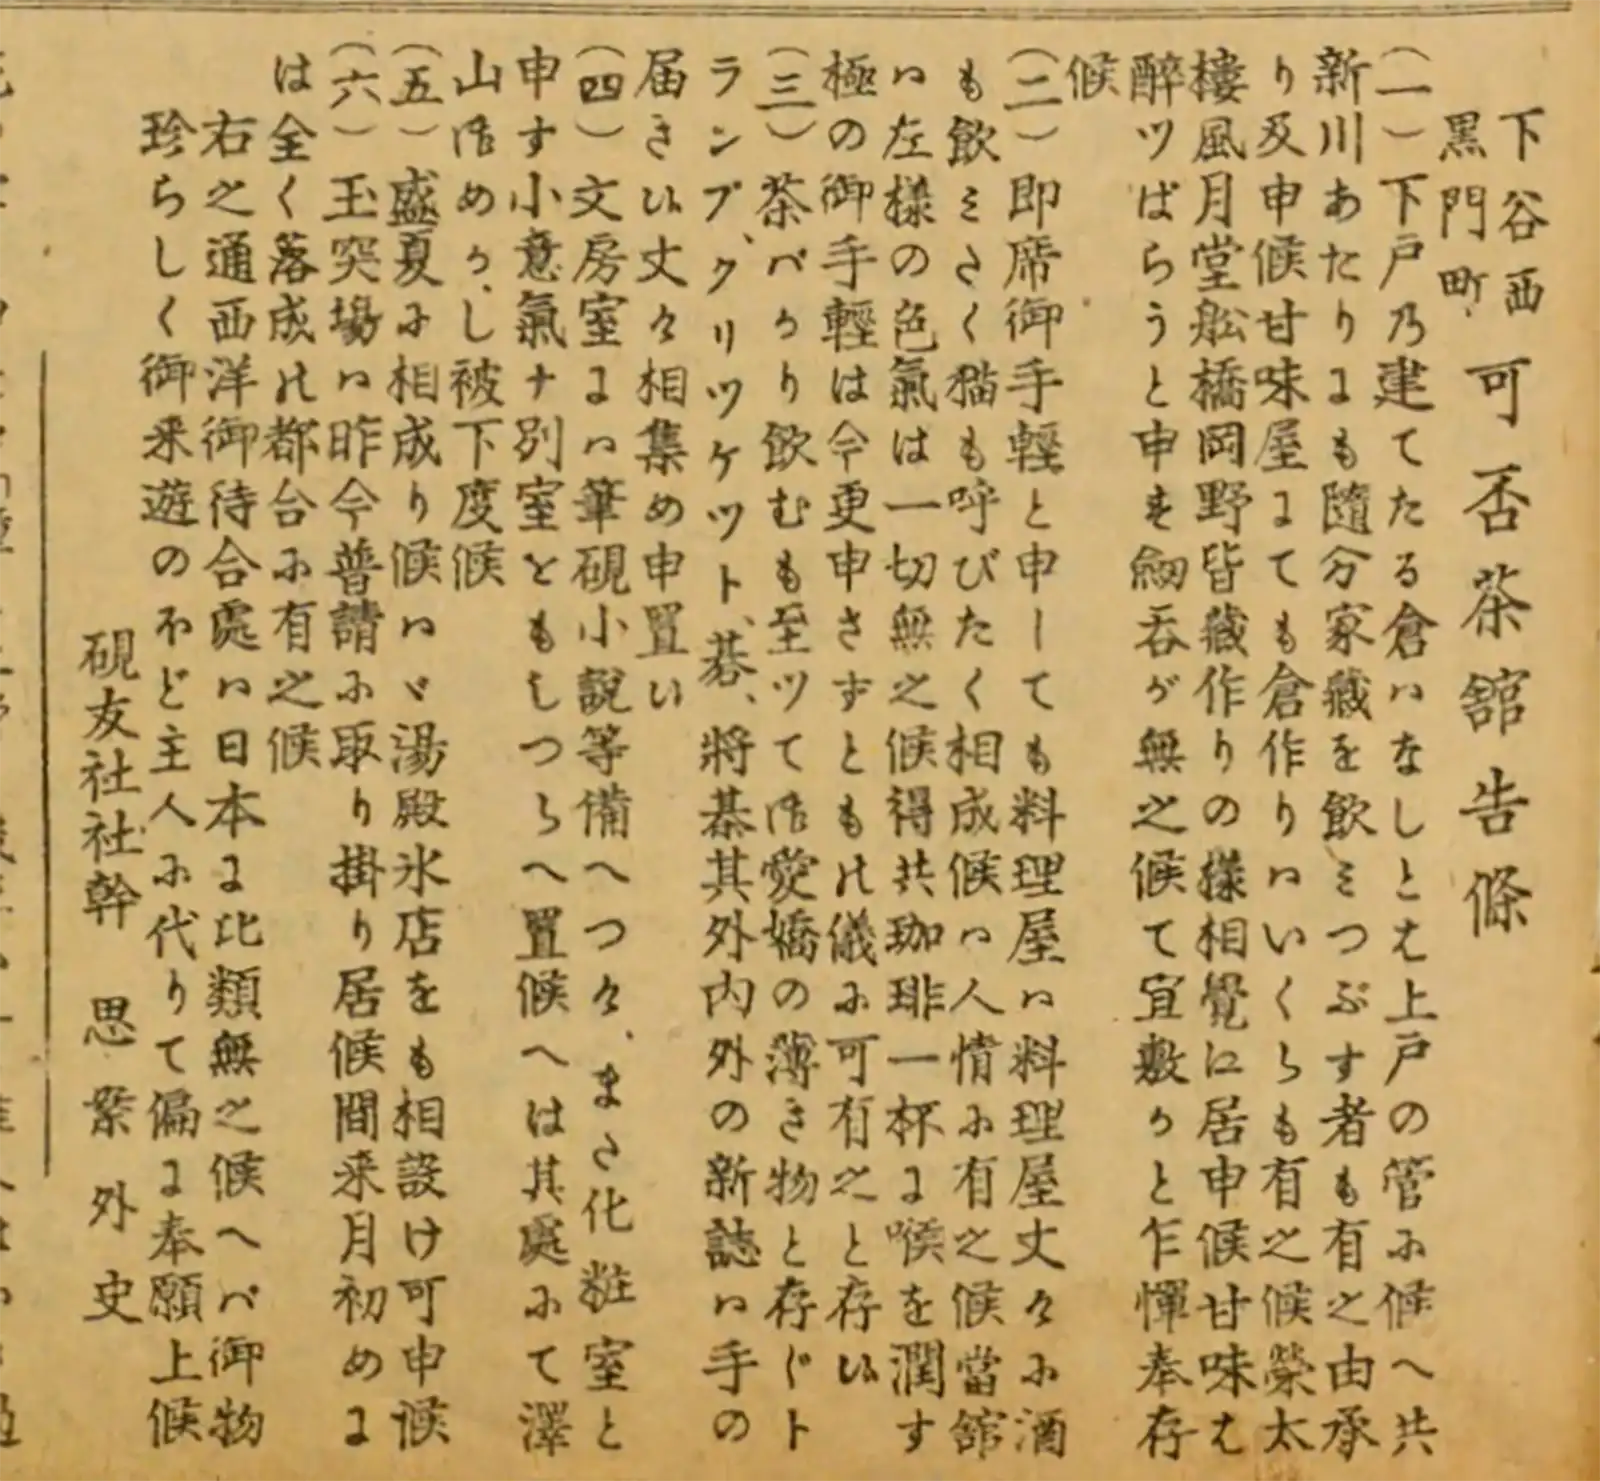 下谷西
黒門町
可否茶舘告條
(一)下戸乃建てたる倉ハなしとえ上戸の管ふ候へ共
新川あたりにも隨分家藏を飲ミつぶす者も有之由承
り及申候甘味屋にても倉作りハいくらも有之候榮太
樓風月堂舩橋岡野皆藏作りの樣相覺に居申候甘味え
醉ツぱらうと申す劒呑が無之候て宜敷かと乍憚奉存
候
(二)即席御手輕と申しても料理屋ハ料理屋丈々ふ酒
も飲ミさく猫も呼びたく相成候ハ人情ふ有之候當舘
ハ左樣の色氣は一切無之候得共珈琲一杯に喉を潤す
極の御手輕は今更申さずとも此儀ふ可有之と存い
(三)茶ばかり飲むも至ツて愛嬌の薄き物と存じト
ランプ、クリツケツト、碁、將棊其外内外の新誌ハ手の
届きい丈々相集め申置い
(四)文房室にハ筆硯小説等備へつけ、まさ化粧室と
申す小意氣ナ別室ともしつらへ置候へは其處ふて澤
山めかし被下度候
(五)盛夏ふ相成り候ハヾ湯殿氷店をも相設け可申候
(六)玉突場ハ昨今普請ふ取り掛り居候間来月初めに
は全く落成此都合ふ有之候
右之通西洋御待合處ハ日本に比類無之候へバ御物
珍らしく御来遊のほど主人ふ代りて偏に奉願上候
硯友社社幹 思案外史